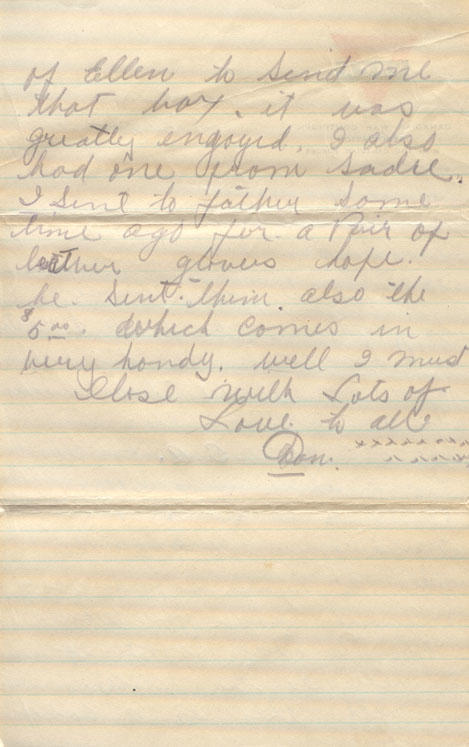 of Ellen to send me
that box. it was
greatly engoyed. I also
had one from Sadie.
I sent to father some
time ago for a Pair of
leather gloves hope.
he. sent. them. also the
$5.00. which comes in
very handy. well I must
Close with Lots of
Love to all
Don.